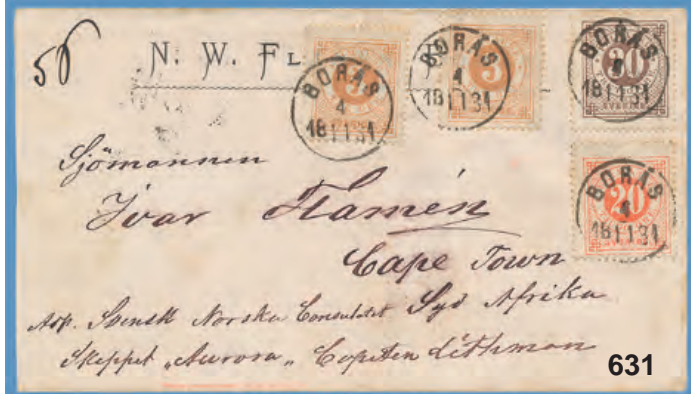 50
N. W. FL
BORÅS
4
18 11 31
BORÅS
4
18 11 31
BORÅS
18 11 31
30
SVERIGE
BORÅS
4
18 11 31
20
Sjömannen
Ivar Flamén
Cape Town
Adr. Svensk Norska Consulatet Syd Afrika
Skeppet „Aurora„ Capiten Lithman
631